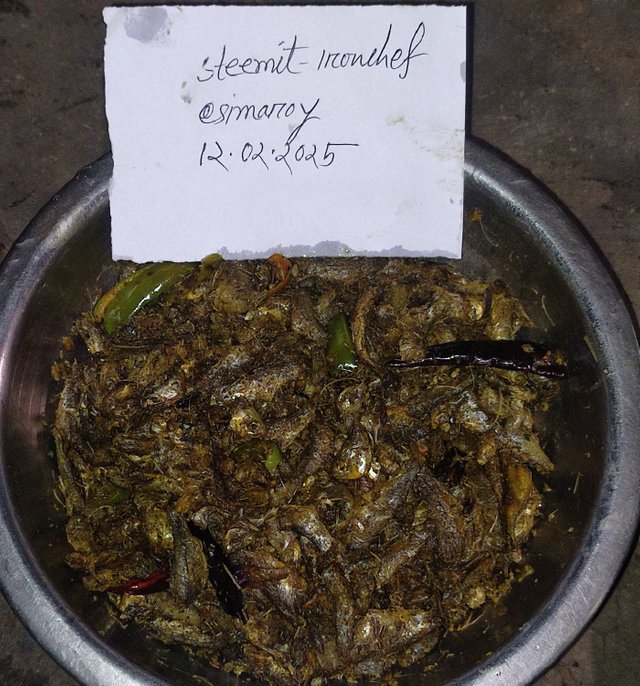 steemit-ironchef
@simaroy
12.02.2025